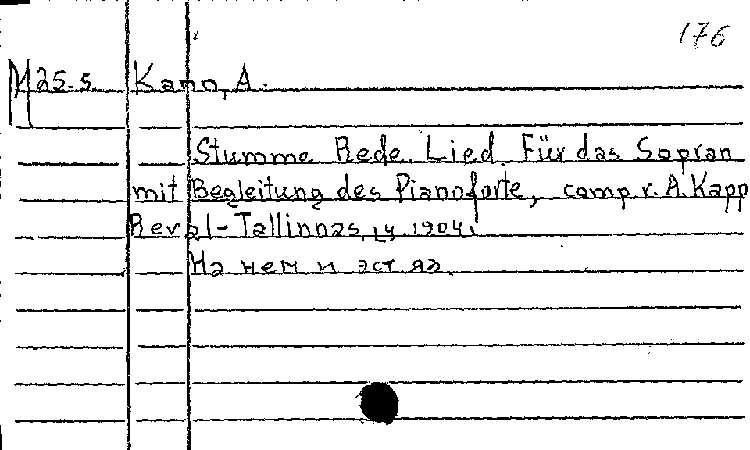 176
M 25-5 Kapp, A.
Stumme Rede. Lied. Für das Sopran
mit Begleitung des Pianoforte, comp. v. A. Kapp
Reval-Tallinnas, 1904.
На нем и эст яз.